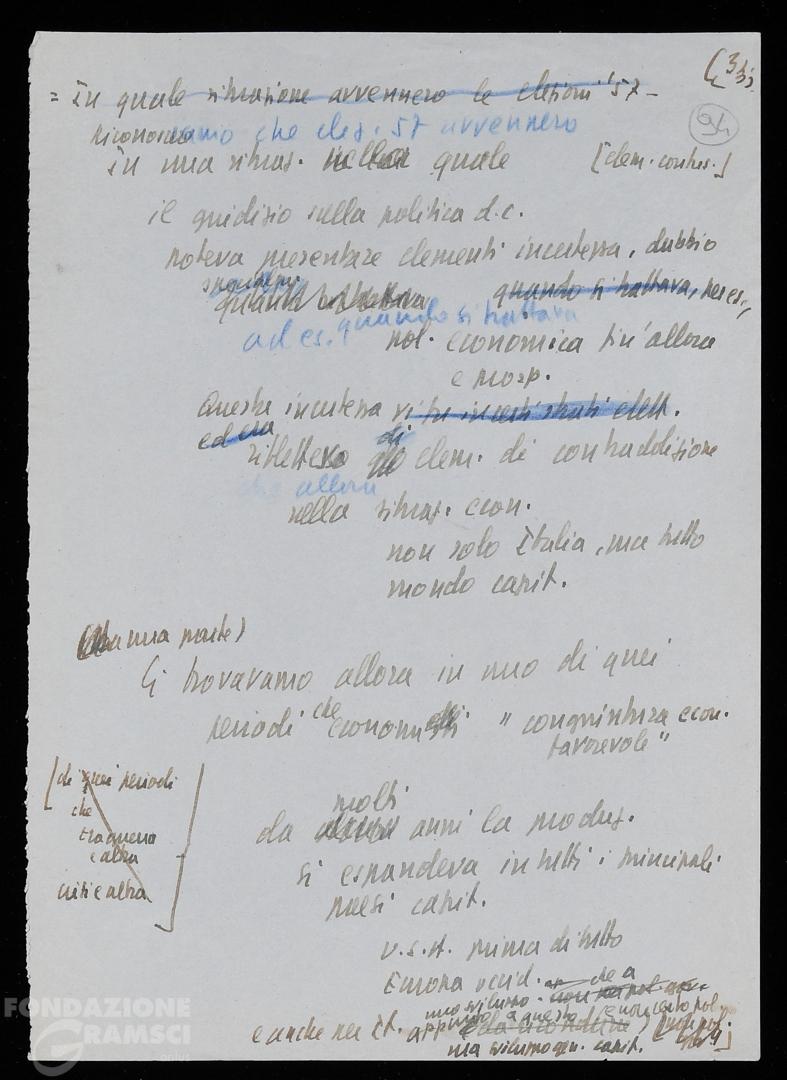 = In quale situazione avvennero le elezioni '57 -
riconosciamo che elez. 57 avvennero
in una situaz. nella quale [elem. contes.]
94
il giudizio sulla politica d.c.
poteva presentare elementi incertezza, dubbio
quando si trattava, per es.,
ad es. quando si trattava
pol. economica fin'allora
e prosp.
Questa incertezza vi fu in certi strati elett.
ed era
rifletteva di elem. di contraddizione
che allora
nella situaz. econ.
non solo Italia, ma tutto
mondo capit.
una parte)
Ci trovavamo allora in uno di quei
periodi che economisti " congiuntura econ.
favorevole "
[di quei periodi
che
tra guerra
e altra
crisi e altra
molti
da alcuni anni la produz.
si espandeva in tutti i principali
paesi capit.
U.S.A. prima di tutto
Europa occid.
uno sviluppo
e anche per It. appunto a questo
ma sviluppo gen. capit.
FONDAZIONE
GRAMSCI
onlus